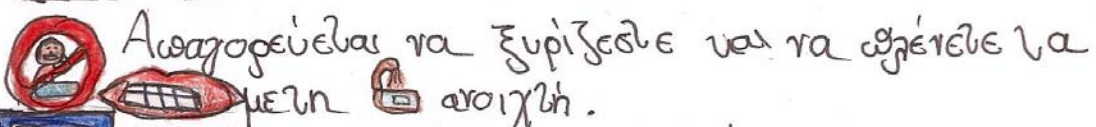 Απαγορεύεται να ξυρίζεστε και να πλένετε τα
με τη ανοιχτή.